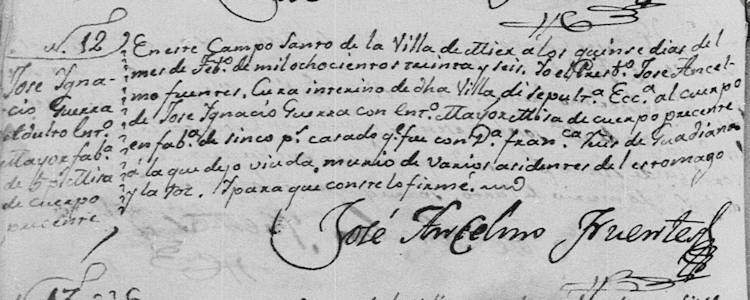 N. 12
Jose Igna-
cio Guerra
Adulto Ent.º
Mayor fab.ª
de 5 p.s Misa
de cuerpo
precente
En este Campo Santo de la Villa de Mier á los quinse dias del
mes de Feb.º de mil ochocientos treinta y seis. Yo el Presb.º José Ancel-
mo fuentes, Cura interino de dha Villa di sepult.ª Ecc.ª al cuerpo
de Jose Ignacio Guerra con ent.º Mayor Misa de cuerpo precente
en fab.ª de sinco p.s casado q.e fue con D.ª Fran.ca Luis de Guadiana
á la que dejo viuda, murio de varios acidentes del estomago
y la toz. Y para que conste lo firmé.
José Ancelmo Fuentes